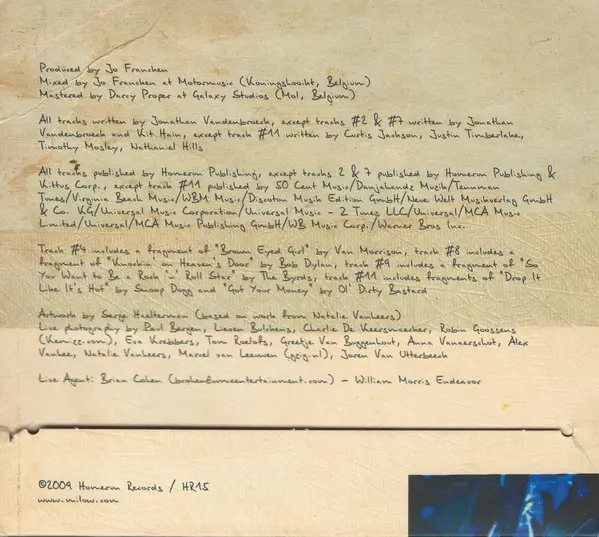 Produced by Jo Francken
Mixed by Jo Francken at Motormusic (Koningshooikt, Belgium)
Mastered by Darcy Proper at Galaxy Studios (Mol, Belgium)
All tracks written by Jonathan Vandenbroeck, except tracks #2 & #7 written by Jonathan
Vandenbroeck and Kit Hain, except track #11 written by Curtis Jackson, Justin Timberlake,
Timothy Mosley, Nathaniel Hills
All tracks published by Homerun Publishing, except tracks 2 & 7 published by Homerun Publishing &
Kittus Corp., except track #11 published by 50 Cent Music/Danjahandz Muzik/Tennman
Tunes/Virginia Beach Music/WBM Music/Discoton Musik Edition GmbH/Neue Welt Musikverlag GmbH
& Co. KG/Universal Music Corporation/Universal Music - Z Tunes LLC/Universal/MCA Music
Limited/Universal/MCA Music Publishing GmbH/WB Music Corp./Warner Bros Inc.
Track #4 includes a fragment of "Brown Eyed Girl" by Van Morrison, track #8 includes a
fragment of "Knockin' on Heaven's Door" by Bob Dylan, track #9 includes a fragment of "So
You Want to Be a Rock 'n' Roll Star" by The Byrds, track #11 includes fragments of "Drop It
Like It's Hot" by Snoop Dogg and "Got Your Money" by Ol' Dirty Bastard
Artwork by Serge Haelterman (based on work from Natalie Vanheers)
Live photography by Paul Bergen, Lieven Bulckens, Charlie De Keersmaecker, Robin Goossens
(Kemizz.com), Eva Krebbers, Tom Roelofs, Greetje Van Buggenhout, Anna Vannerschot, Alex
Vanhee, Natalie Vanheers, Marcel van Leeuwen (gcig.nl), Joren Van Utterbeeck
Live Agent: Brian Cohen (bcohen@wmeentertainment.com) - William Morris Endeavor
©2009 Homerun Records / HR15
www.milow.com